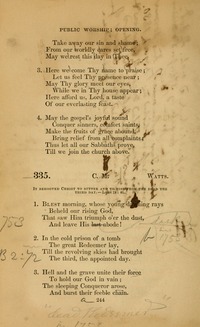 PUBLIC WORSHIP; OPENING.
Take away our sin and shame;
From our worldly cares set free,
May we rest this day in Thee.
3. Here we come Thy name to praise;
Let us feel Thy presence near;
May Thy glory meet our eyes,
While we in Thy house appear;
Here afford us, Lord, a taste
Of our everlasting feast.
4. May the gospel's joyful sound
Conquer sinners, comfort saints;
Make the fruits of grace abound,
Bring relief from all complaints;
Thus let all our Sabbaths prove,
Till we join the church above.
335. C. M. WATTS.
THIRD DAY.
1. BLEST morning, whose young rays
Beheld our rising God,
That saw Him triumph o'er the dust,
And leave His abode!
2. In the cold prison of a tomb
The great Redeemer lay,
Till the revolving skies had brought
The third, the appointed day.
3. Hell and the grave unite their force
To hold our God in vain;
The sleeping Conqueror arose,
And burst their feeble chain.
244